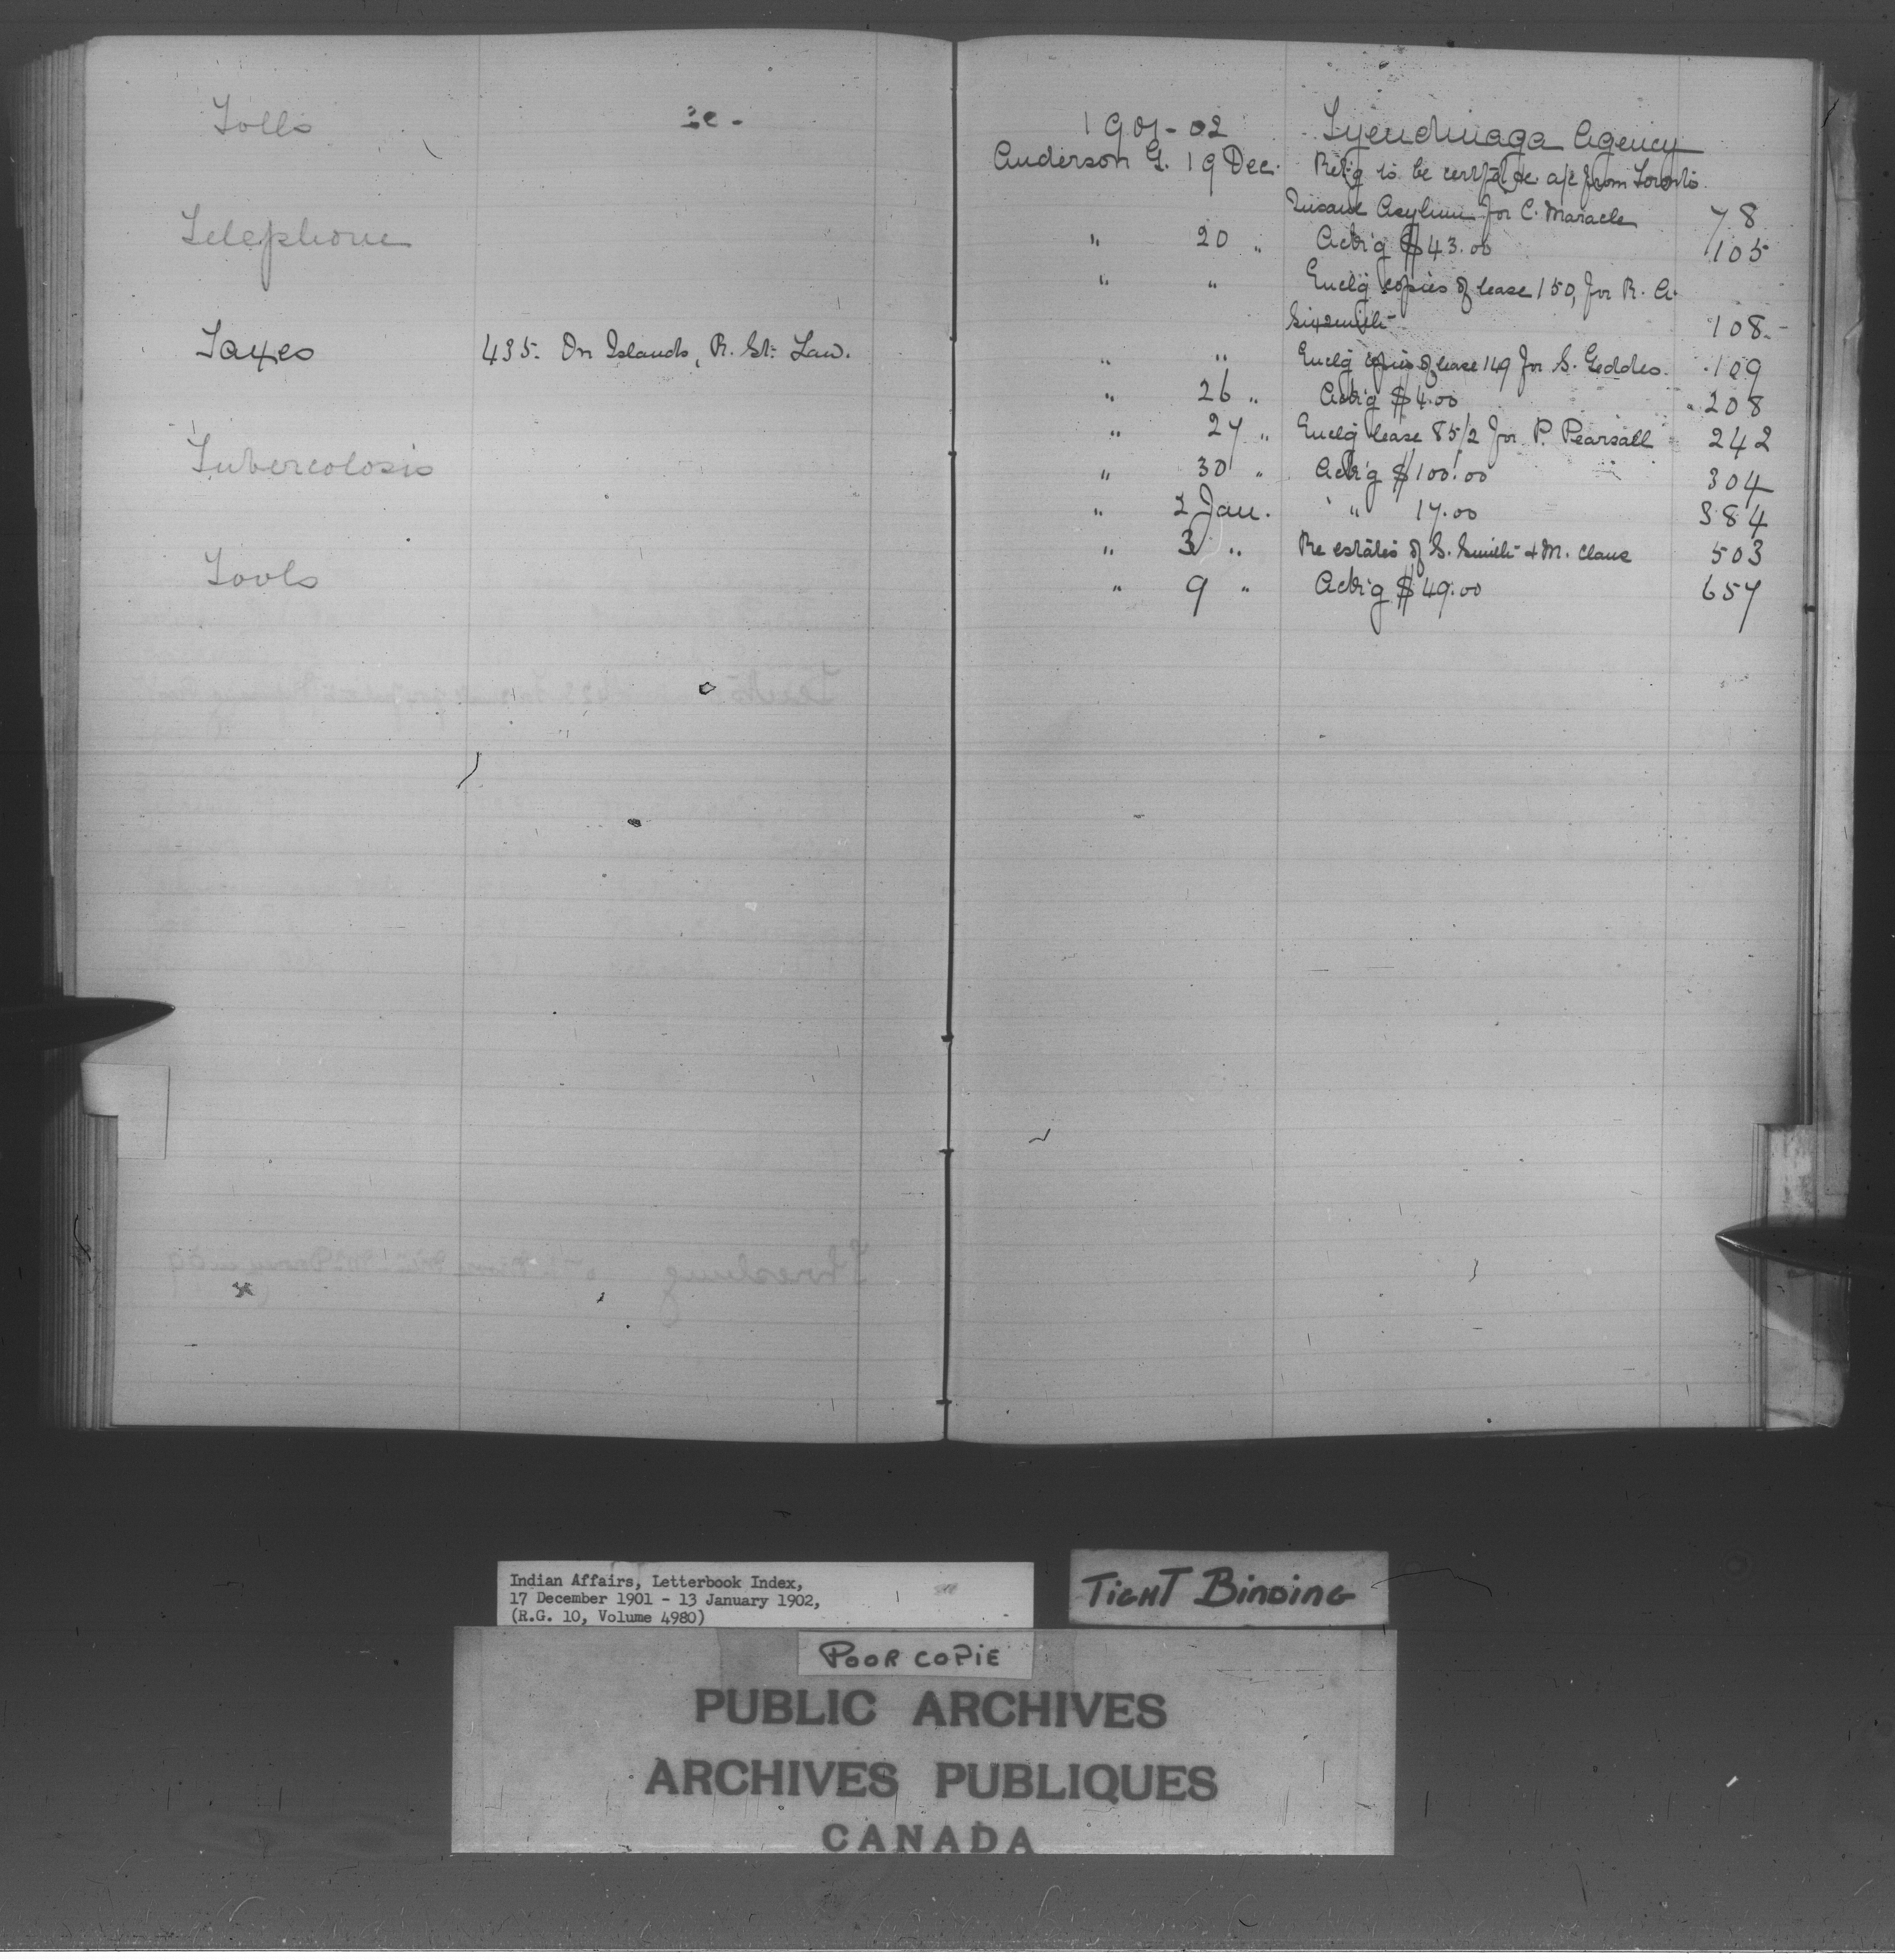 Tolls
Telephone
Taxes 435. On Islands, R. St. Law.
Tubercolosis
Tools
1901-02 Tyendinaga Agency
Anderson G. 19 Dec. Ret'g to be certf'd &c. a/c from Toronto
Insane Asylum for C. Maracle 78
" 20 " Ack'g $43.00 105
" " Encl'g copies of lease 150, for R. A.
Sixsmith 108
" " Encl'g copies of lease 149 for S. Geddes. 109
" 26 " Ack'g $4.00 208
" 27 " Encl'g lease 85/2 for P. Pearsall 242
" 30 " Ack'g $100.00 304
" 2 Jan. " 17.00 384
" 3 " Re estates of S. Smith & M. Claus 503
" 9 " Ack'g $49.00 657
Indian Affairs, Letterbook Index,
17 December 1901 - 13 January 1902,
(R.G. 10, Volume 4980)
TIGHT BINDING
POOR COPIE
PUBLIC ARCHIVES
ARCHIVES PUBLIQUES
CANADA